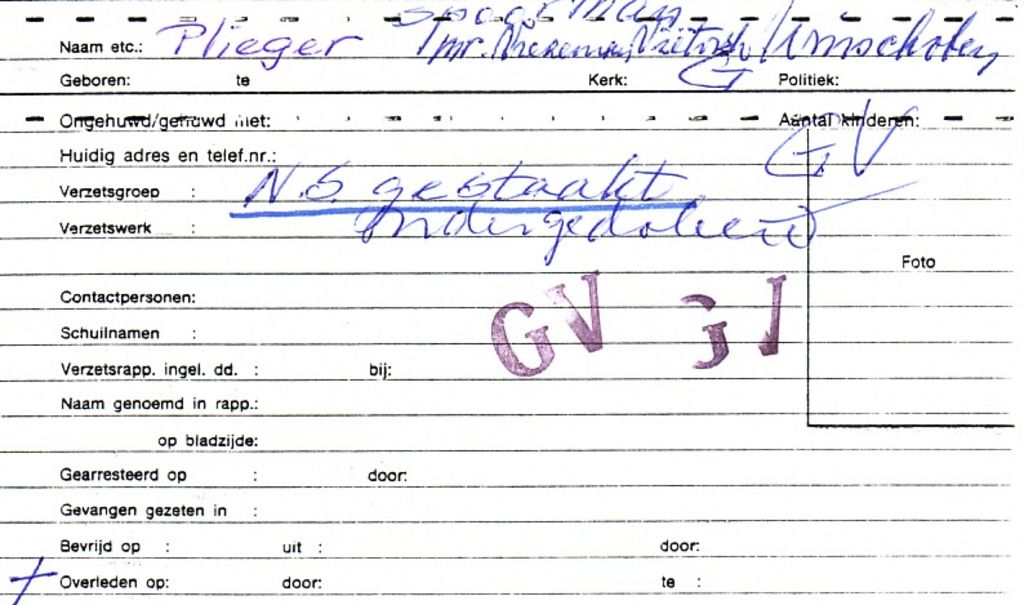 spoorman
Naam etc.: Plieger
Geboren: te Kerk: G Politiek:
Ongehuwd/gehuwd met: Aantal kinderen:
GV
Huidig adres en telef.nr.:
Verzetsgroep : N.S. gestaakt
Verzetswerk : ondergedoken
Foto
Contactpersonen:
GV GV
Schuilnamen :
Verzetsrapp. ingel. dd. : bij:
Naam genoemd in rapp.:
op bladzijde:
Gearresteerd op : door:
Gevangen gezeten in :
Bevrijd op : uit : door:
Overleden op: door: te :